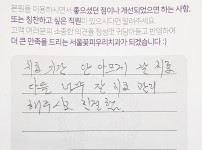 본원을 이용하시면서 좋으셨던 점이나 개선되었으면 하는 사항,
또는 칭찬하고 싶은 직원이 있으시다면 말해주세요.
고객 여러분의 소중한 의견을 정성껏 귀담아듣고 반영하여
더 큰 만족을 드리는 서울꽃피우리치과가 되겠습니다 :)
치료 기간 안 아프게 잘 치료
다들 너무 잘 치료 관리
해주시고 친절했